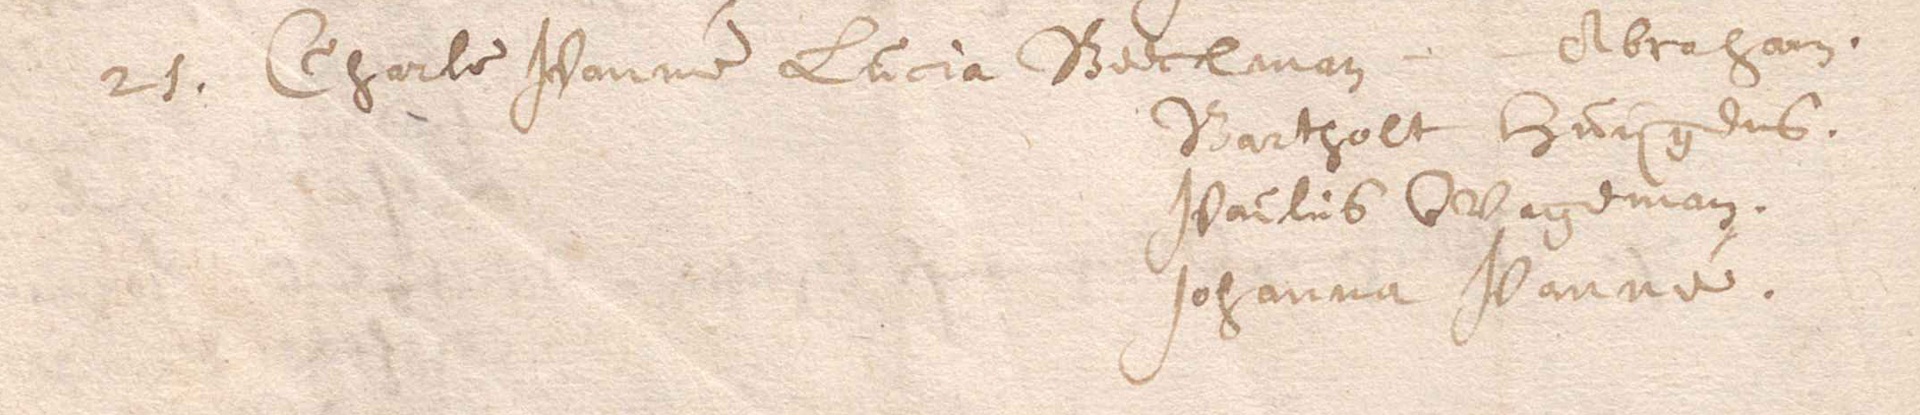 21. Charle Panné Lucia Beeckman - - Abraham.
Bartholt Huijgens.
Paulus Wageman.
Johanna Panné.